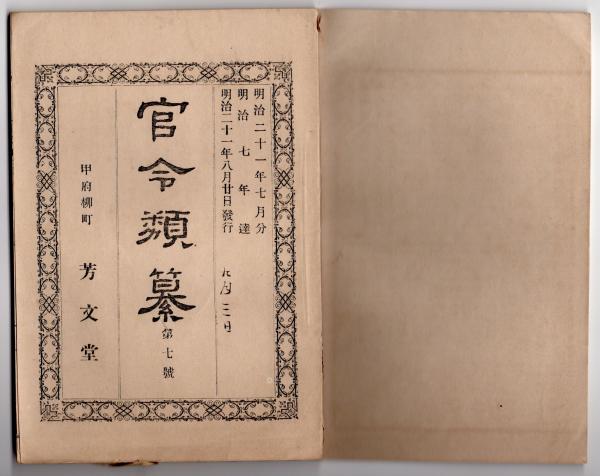 明治二十一年七月分
明治七年達
明治二十一年八月廿日發行
官令類纂
第七號
甲府柳町
芳文堂